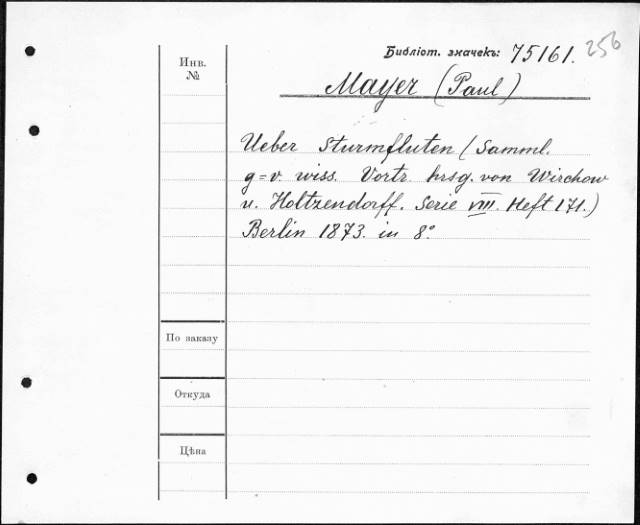 256
Библіот. значекъ: 75161.
Инв.
№
Mayer (Paul)
Ueber Sturmfluten (Samml.
g=v. wiss. Vortr. hrsg. von Wirchow
u. Holtzendorff. Serie VIII. Heft 171.)
Berlin 1873. in 8°
По заказу
Откуда
Цѣна